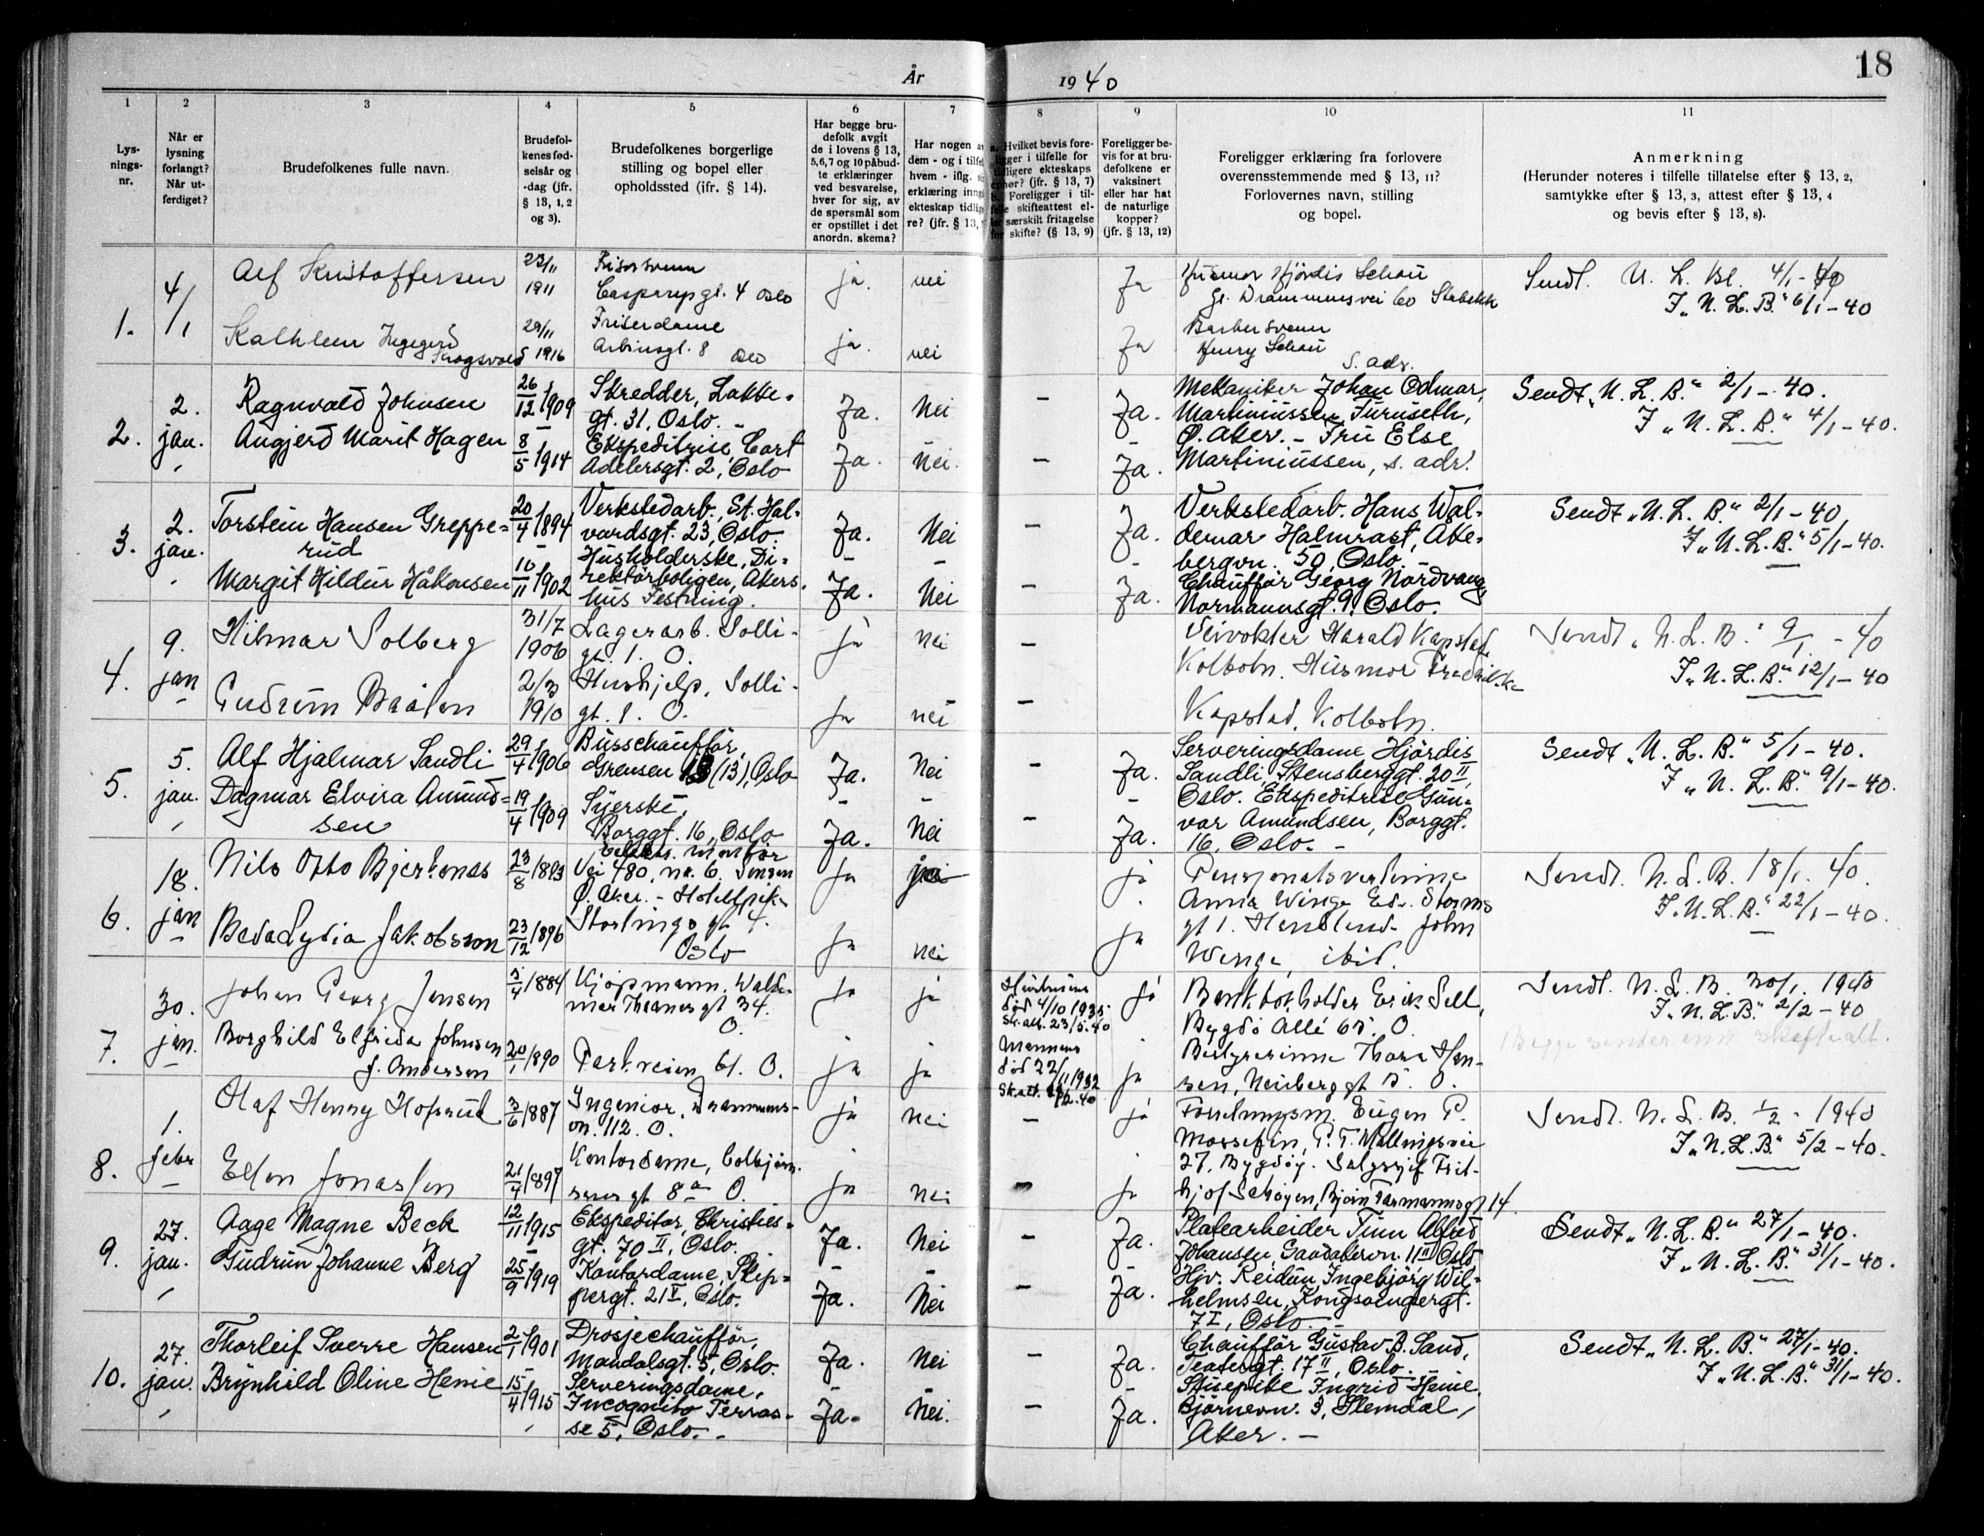 År 1940
18
1 2 3 4 5 6 7 8 9 10 11
Lysningsnr.
Når er lysning forlangt? Når utferdiget?
Brudefolkenes fulle navn.
Brudefolkenes fødselsår og -dag (jfr. § 13, 1, 2 og 3).
Brudefolkenes borgerlige stilling og bopel eller opholdssted (ifr. § 14).
Har begge brudefolk avgit de i lovens § 13, 5,6,7 og 10 påbudte erklæringer ved besvarelse, hver for sig, av de spørsmål som er opstillet i det anordn. skema?
Har nogen
dem - og i
hvem - iflg.
erklæring
ekteskap
re? (jfr. § 13,
Hvilket bevis fore-
i tilfelle for
ekteskaps
(jfr. § 13, 7)
Foreligger i til-
skifteattest el-
særskilt fritagelse
skifte? (§ 13, 9)
Foreligger bevis for at brudefolkene er vaksinert eller har hat de naturlige kopper? (jfr. § 13, 12)
Foreligger erklæring fra forlovere overensstemmende med § 13, 11? Forlovernes navn, stilling og bopel.
Anmerkning
(Herunder noteres i tilfelle tillatelse efter § 13, 2, samtykke efter § 13, 3, attest efter § 13, 4 og bevis efter § 13, 8).
1. 4/1
Alf Kristoffersen 23/11 1911
Frisørsvenn
gt. 4 Oslo
ja. nei ja
Hjørdis Schau
Gl. Drammensvei 60 Stabekk
Sendt. N. L. Bl. 4/1-40
I „N. L. B." 6/1-40
Kathleen Ingegerd
Skogsvold 1916
Friserdame
gt. 8 Oslo
ja. nei ja
Barbersvenn
Henry Schau
s. adr.
2. 2. jan.
Ragnvald Johnsen 26/12 1909
Skredder, Lakke-
gt. 31, Oslo. -
Ja. Nei - Ja.
Mekaniker Johan Odmar
Martiniussen, Furuseth,
Ø. Aker. - Fru Else
Martiniussen, s. adr.
Sendt „N. L. B." 2/1-40.
I „N. L. B." 4/1-40.
Augjerd Marit Hagen 8/5 1914
Ekspeditrise, Cort
Adelersgt. 2, Oslo
Ja. Nei. - Ja.
3. 2. jan.
Torstein Hansen Greppe-
rud 20/4 1894
Verkstedarb., St. Hal-
vardsgt. 23, Oslo.
Ja. Nei - Ja.
Verkstedarb. Hans Wal-
demar Halmrast, Ake-
bergvn. 50, Oslo. -
Chauffør Georg Nordvang
Normannsgt. 9, Oslo.
Sendt „N. L. B." 2/1-40
I „N. L. B." 5/1-40.
Margit Hildur Håkonsen 10/11 1902
Husholderske, Di-
rektørboligen, Akers-
hus Festning.
Ja. Nei - Ja.
4. 9. jan
Hilmar Solberg 31/7 1906
Lagerarb. Solli-
gt. 1. O.
ja nei -
Veivokter Harald Kapstad
Kolbotn. Husmor Fredrikke
Kapstad, Kolbotn.
Sendt „N. L. B." 9/1-40
I „N. L. B." 12/1-40
Gudrun Bråten 2/3 1910
Hushjelp, Solli-
gt. 1. O.
ja nei -
5. 5. jan.
Alf Hjalmar Sandli 29/4 1906
Busschauffør,
Grensen 13 (13), Oslo
Ja. Nei - Ja.
Serveringsdame Hjørdis
Sandli, Stensberggt. 20 II,
Oslo. Ekspeditrise Gun-
vor Amundsen, Borggt.
16, Oslo. -
Sendt „N. L. B." 5/1-40.
I „N. L. B." 9/1-40.
Dagmar Elvira Amund-
sen 19/4 1909
Syerske
Borggt. 16, Oslo
Ja. Nei - Ja.
6. 18. jan
Nils Otto Bjerkenas 23/8 1893
Elektr. montør
Vei 480, nr. 6.
Ø. Aker. - Hotellpike
ja ja
Anna Winge Ed. Storms
gt 1. John
Winge, ibid.
Sendt. N. L. B. 18/1. 40.
I „N. L. B." 22/1-40.
Beda Lydia Jakobsson 23/12 1896
Stortingsgt 4.
Oslo
ja nei ja
7. 30. jan.
Johan Georg Jensen /4 1884
Kjøpmann, Walde-
mar Thranes gt 34.
O.
ja ja
Hustruens
død 4/10 1935
Sk.att. 23/5.40
ja
Bankbokholder Erik Sell,
Bygdø Allé 65. O.
Bestyrerinne Thora Han-
sen, Neuberggt 15. O.
Sendt. N. L. B. 30/1. 1940
I „N. L. B." 2/2-40
Borghild Elfrida Johnsen
f. Andersen 1890
Parkveien 61. O.
ja ja
Mannens
død 22/11 1932
ja
8. 1. febr
Olaf Henry Hofsrud 3/6 1887
Ingeniør, Drammens-
vn. 112. O.
ja nei - ja
Eugen P.
P. T. Mallingsvei
27, Bygdøy. Frit-
hjof Schøyen, Bjørn Farmannsgt 14.
Sendt. N. L. B. 1/2 - 1940
I „N. L. B." 5/2-40.
Ellen Jonassen 21/4 1897
Kontordame, Colbjørn-
sens gt 8 a O.
ja nei - ja
9. 27. jan.
Aage Magne Beck 12/11 1915
Ekspeditør, Christies-
gt. 70 II, Oslo.
Ja. Nei - Ja.
Platearbeider Finn Alfred
Johansen, 11 II Oslo
Hjv. Reidun Ingebjørg Wil-
helmsen, Kongsvingergt.
7 I, Oslo.
Sendt „N. L. B." 27/1-40.
I „N. L. B." 31/1-40.
Gudrun Johanne Berg 25/9 1919
Kontordame, Skip-
pergt. 21 V, Oslo.
Ja. Nei - Ja.
10. 27. jan.
Thorleif Sverre Hansen 2/1 1901
Drosjechauffør,
Mandalsgt. 5, Oslo.
Ja. Nei - Ja.
Chauffør Gustav B. Sand,
Teatergt. 17 II, Oslo.
Stuepike Ingrid Henie,
Bjørnevn. 3, Slemdal,
Aker. -
Sendt „N. L. B." 27/1-40.
I „N. L. B." 31/1-40.
Brynhild Oline Henie 15/4 1915
Serveringsdame,
Incognito Terras-
se 5, Oslo. -
Ja. Nei. - Ja.